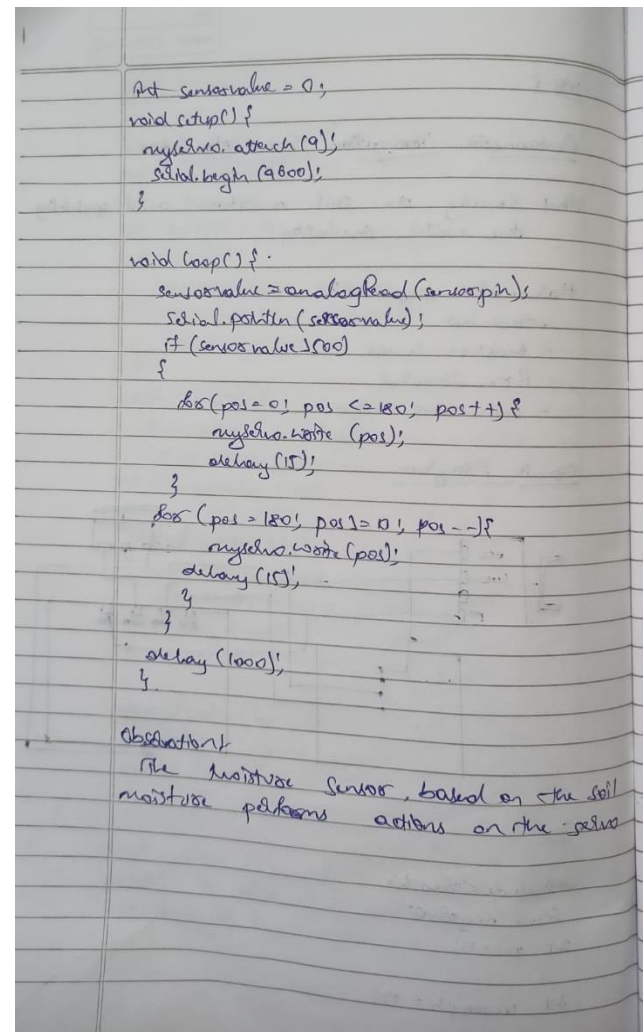 int sensorvalue = 0;
void setup() {
myservo.attach (9);
serial.begin (9600);
}
void loop() {
sensorvalue = analogRead (sensorpin);
serial.println (sensorvalue);
if (sensorvalue >500)
{
for (pos = 0; pos <= 180; pos ++) {
myservo.write (pos);
delay (15);
}
for (pos = 180; pos >= 0; pos --) {
myservo.write (pos);
delay (15);
}
}
delay (1000);
}
Observation:
The moisture sensor, based on the soil
moisture performs actions on the servo